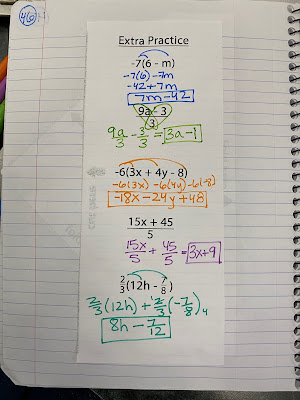 46
Extra Practice
-7(6 - m)
-7(6) -7m
-42 + 7m
7m - 42
9a - 3
3
9a/3 - 3/3 = 3a - 1
-6(3x + 4y - 8)
-6(3x) -6(4y) -6(-8)
-18x - 24y + 48
15x + 45
5
15x/5 + 45/5 = 3x + 9
2/3(12h - 7/8)
2/3(12h) + 2/3(-7/8)4
8h - 7/12